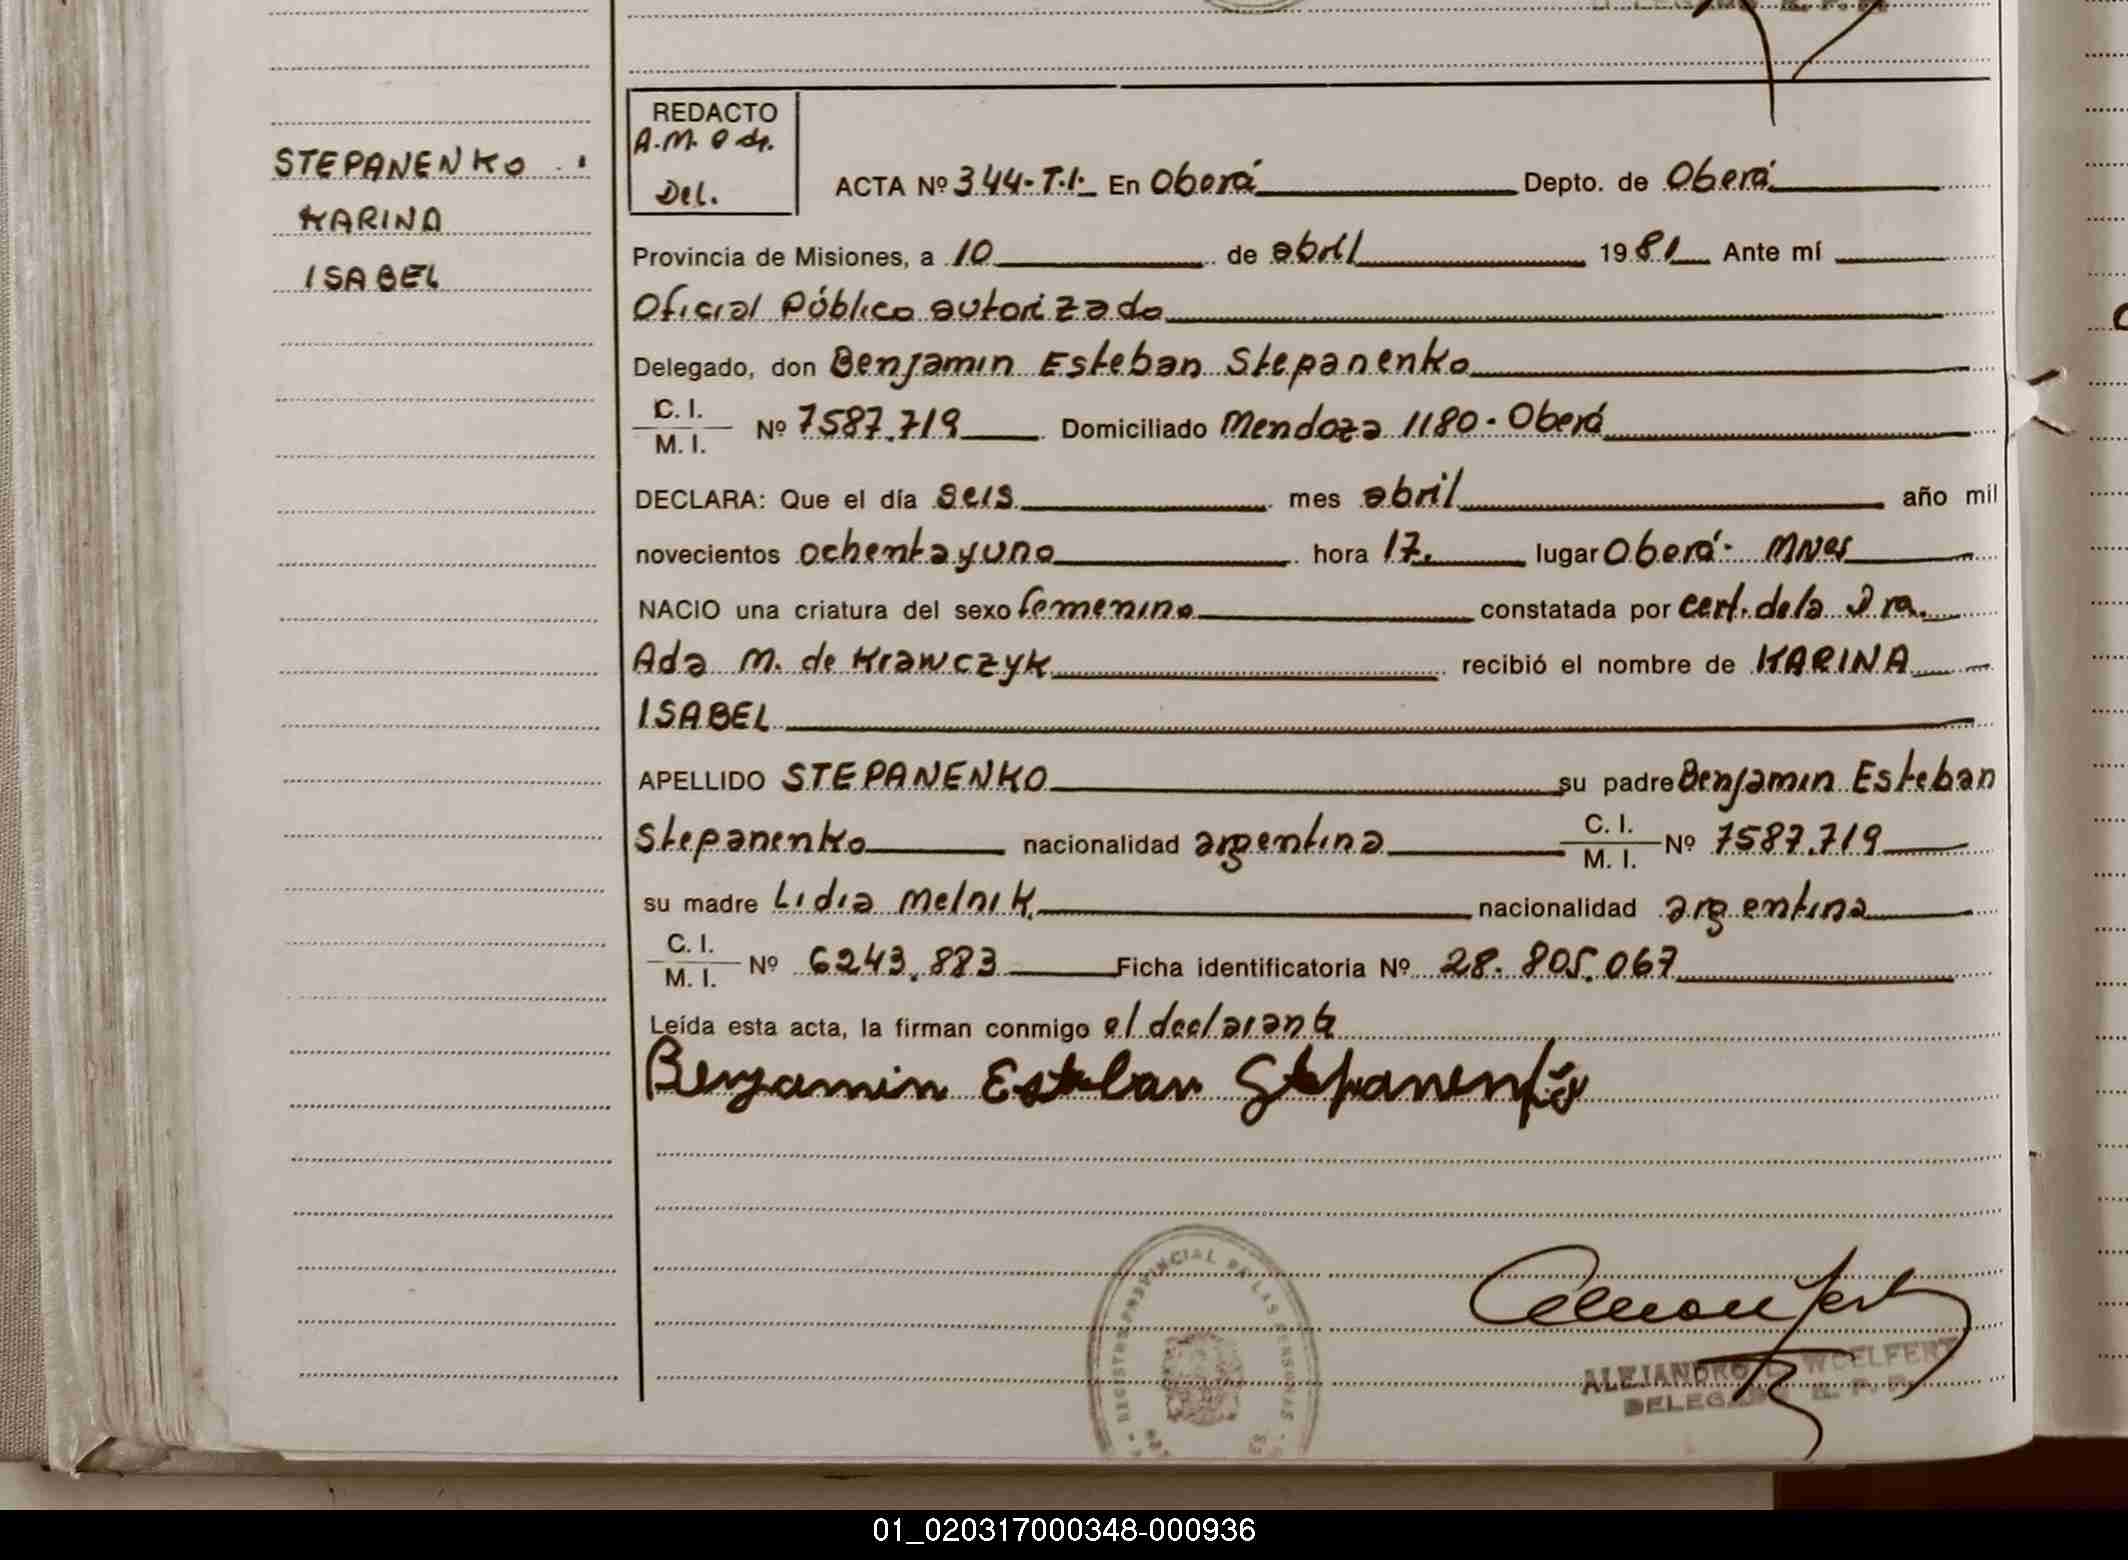 STEPANENKO
KARINA
ISABEL
REDACTO
A.M.
Del.
ACTA Nº 344-T.I. En Oberá Depto. de Oberá
Provincia de Misiones, a 10 de abril 1981 Ante mí
Oficial Público autorizado
Delegado, don Benjamin Esteban Stepanenko
C. I.
M. I. Nº 7587.719 Domiciliado Mendoza 1180 - Oberá
DECLARA: Que el día seis mes abril año mil
novecientos ochenta y uno hora 17. lugar Oberá - Mnes
NACIO una criatura del sexo femenino constatada por cert. de la Dra.
Ada M. de Krawczyk recibió el nombre de KARINA
ISABEL
APELLIDO STEPANENKO su padre Benjamin Esteban
Stepanenko nacionalidad argentina C. I.
M. I. Nº 7587.719
su madre Lidia Melnik nacionalidad argentina
C. I.
M. I. Nº 6243.883 Ficha identificatoria Nº 28.805.067
Leída esta acta, la firman conmigo el declarante
Benjamin Esteban Stepanenko
REGISTRO PROVINCIAL DE LAS PERSONAS
ALEJANDRO WOELFERT
DELEGADO R. P. P.
01_020317000348-000936